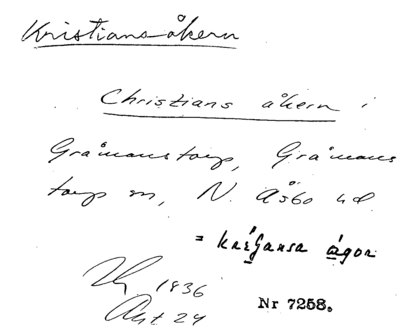 Kristiansåkern
Christians åkern i
Gråmanstorp, Gråmans
torp sn, N. Åsbo hd
= kréʃansa ágor
1836
Akt 24
Nr 7258.